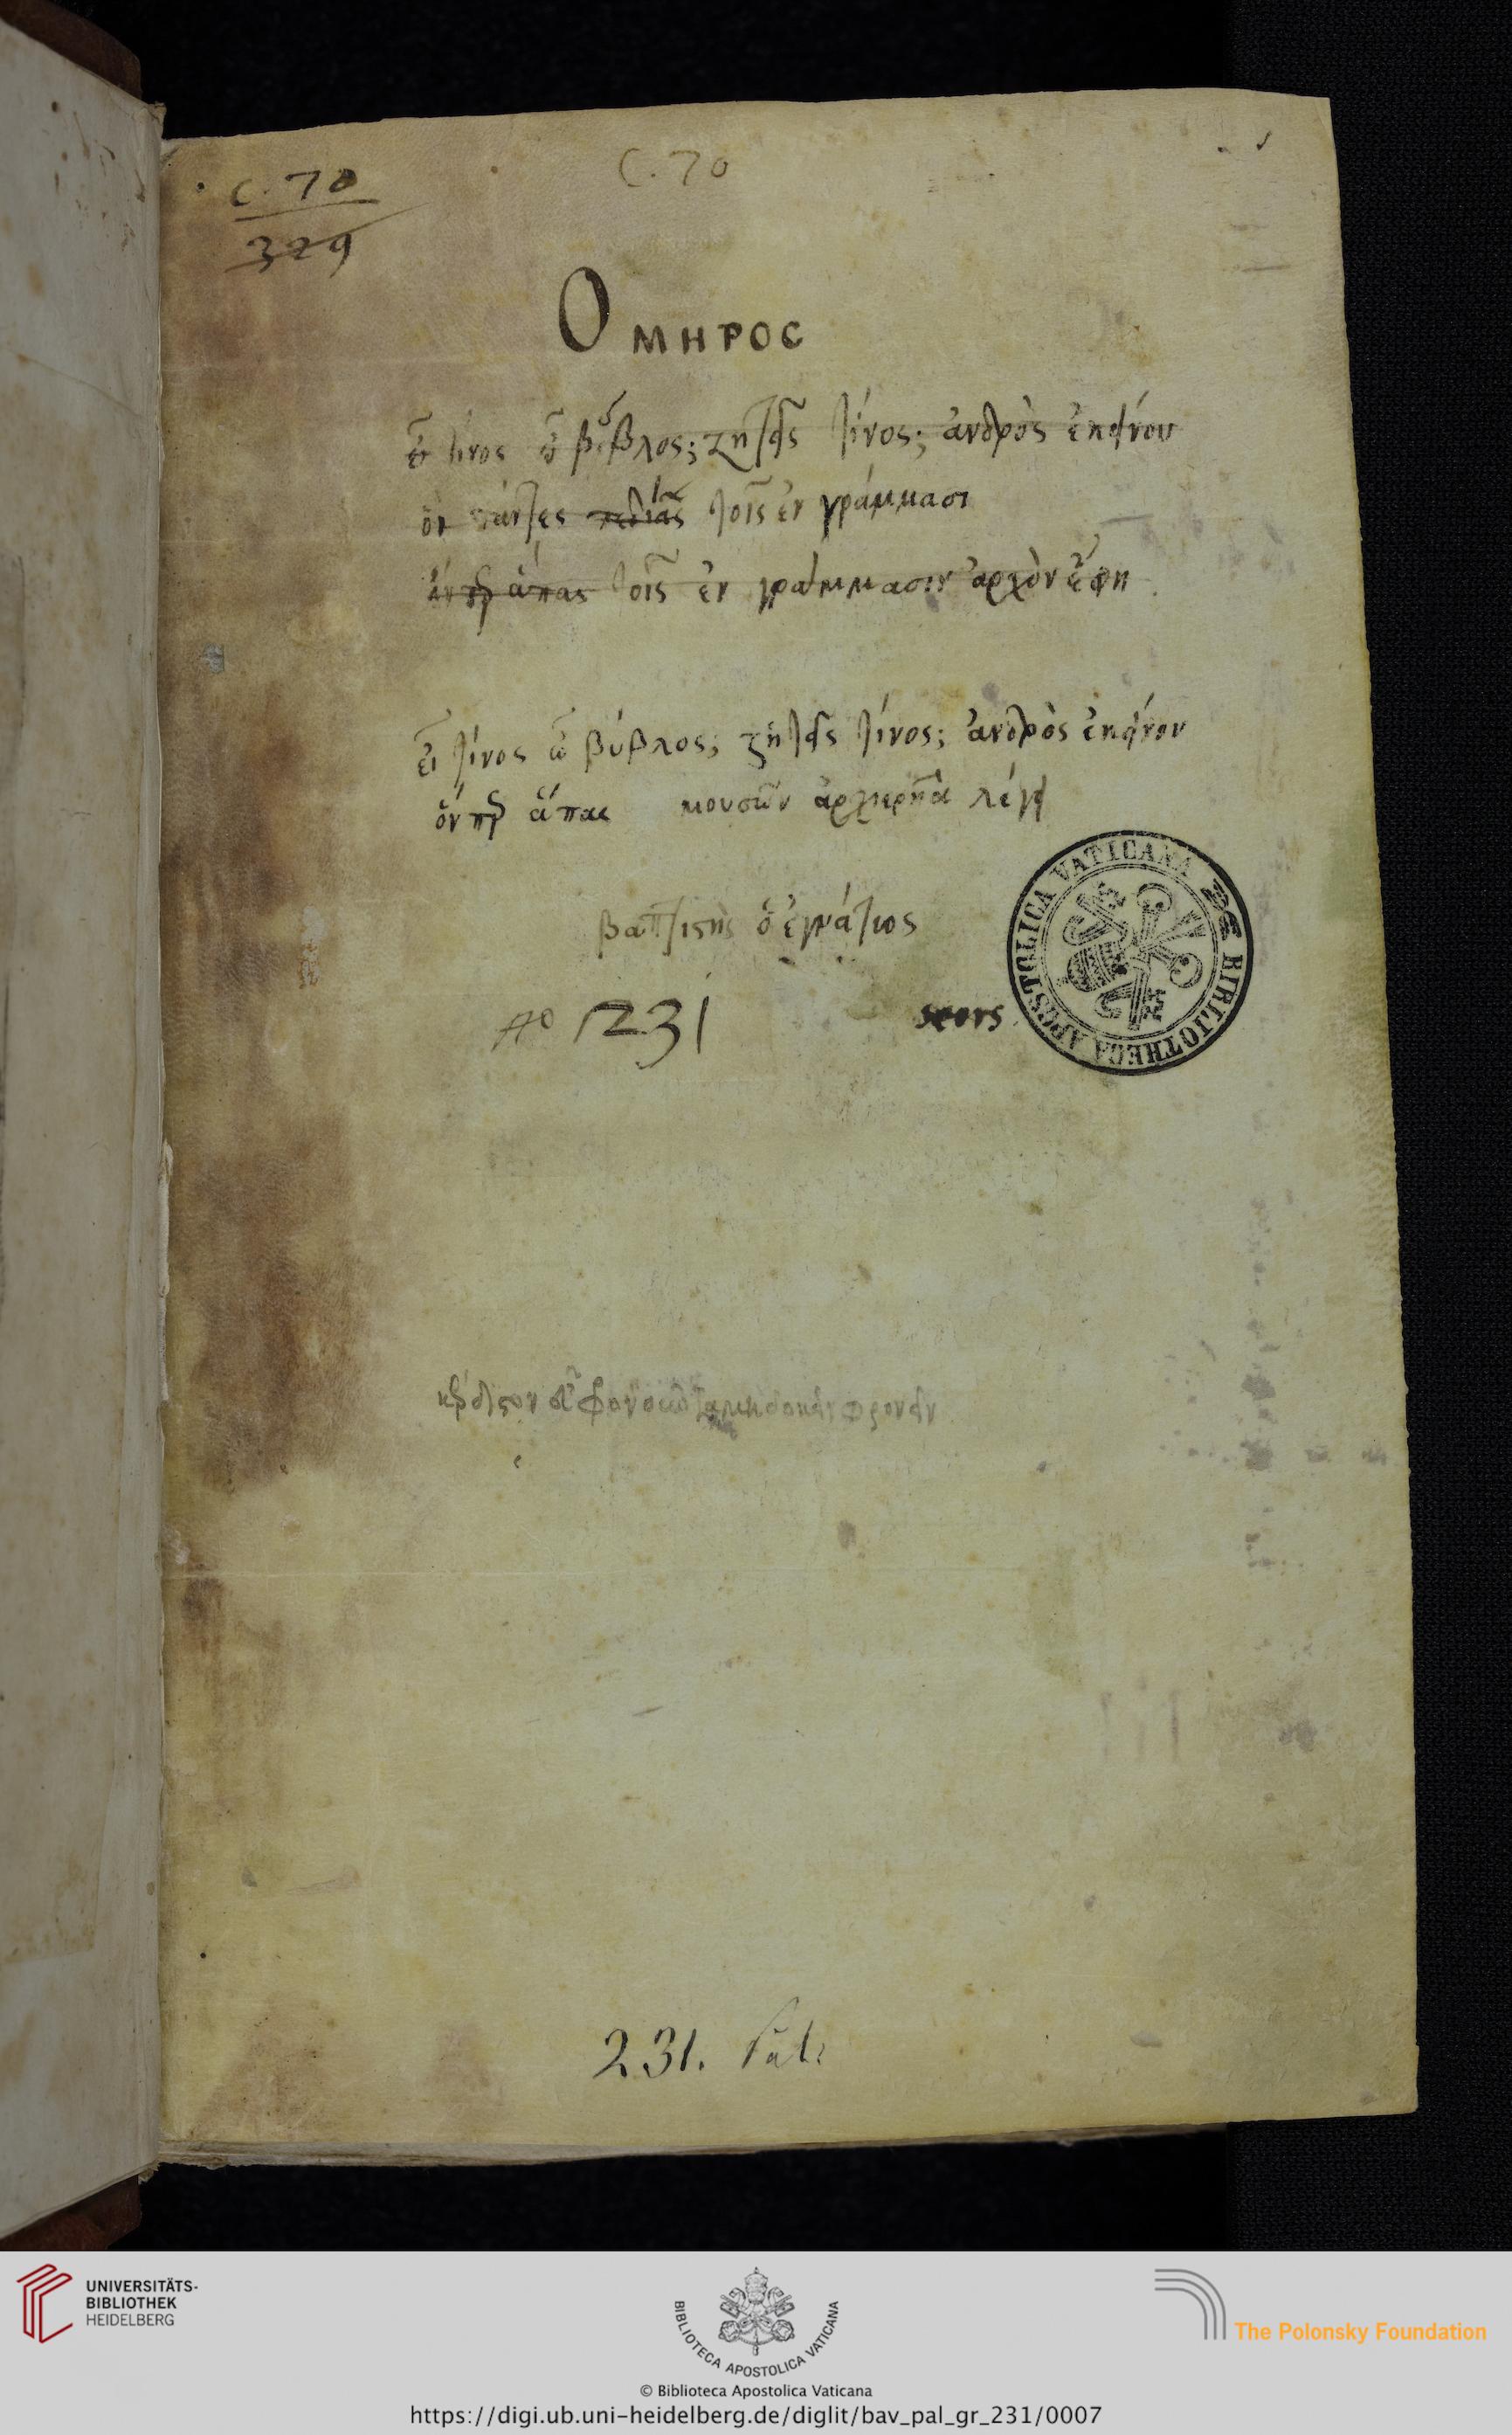 C. 70
C. 70
329
Ομηρος
εἶ τίνος ὦ βύβλος; ζητεῖς τίνος; ἀνδρὸς ἐκείνου
ὃν πάντες τοῖς ἐν γράμμασι
ὅνπερ ἅπας τοῖς ἐν γράμμασιν ἀρχὸν ἔφη
εἶ τίνος ὦ βύβλος; ζητεῖς τίνος; ἀνδρὸς ἐκείνου
ὅνπερ ἅπας μουσῶν ἀρχιερῆα λέγει
βαπτιστὴς ὁ ἐγνάτιος
1231
BIBLIOTHECA APOSTOLICA VATICANA
φρονεῖν
231. Pal.
UNIVERSITÄTS-
BIBLIOTHEK
HEIDELBERG
BIBLIOTECA APOSTOLICA VATICANA
The Polonsky Foundation
© Biblioteca Apostolica Vaticana
https://digi.ub.uni-heidelberg.de/diglit/bav_pal_gr_231/0007